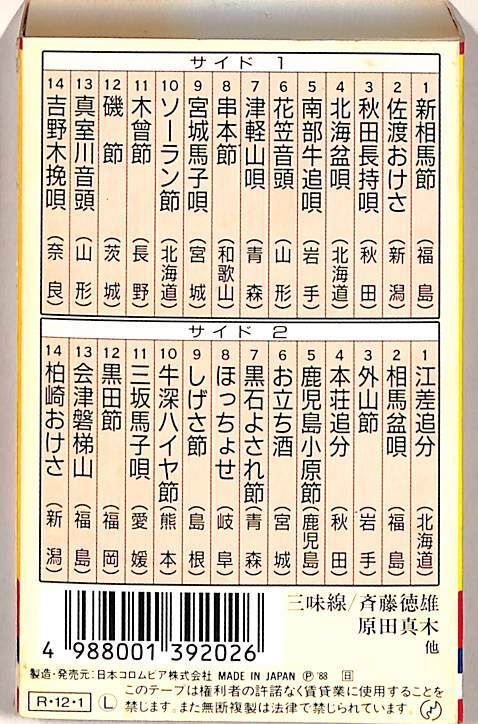 サイド 1
1 新相馬節 （福島）
2 佐渡おけさ （新潟）
3 秋田長持唄 （秋田）
4 北海盆唄 （北海道）
5 南部牛追唄 （岩手）
6 花笠音頭 （山形）
7 津軽山唄 （青森）
8 串本節 （和歌山）
9 宮城馬子唄 （宮城）
10 ソーラン節 （北海道）
11 木曾節 （長野）
12 磯節 （茨城）
13 真室川音頭 （山形）
14 吉野木挽唄 （奈良）
サイド 2
1 江差追分 （北海道）
2 相馬盆唄 （福島）
3 外山節 （岩手）
4 本荘追分 （秋田）
5 鹿児島小原節 （鹿児島）
6 お立ち酒 （宮城）
7 黒石よされ節 （青森）
8 ほっちょせ （岐阜）
9 しげさ節 （島根）
10 牛深ハイヤ節 （熊本）
11 三坂馬子唄 （愛媛）
12 黒田節 （福岡）
13 会津磐梯山 （福島）
14 柏崎おけさ （新潟）
三味線/斉藤徳雄
原田真木
他
4 988001 392026
製造・発売元:日本コロムビア株式会社 MADE IN JAPAN Ⓟ'88 日
R・12・1 Ⓛ このテープは権利者の許諾なく賃貸業に使用することを
禁じます。また無断複製は法律で禁じられています。